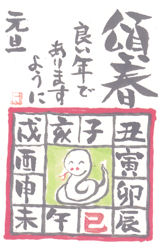 頌春
良い年で
あります
ように
元旦
戌亥子丑
酉寅
申卯
未午巳辰